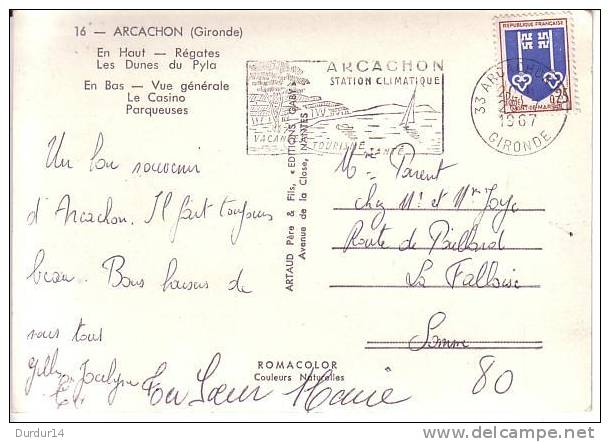 16 — ARCACHON (Gironde)
En Haut — Régates
Les Dunes du Pyla
En Bas — Vue générale
Le Casino
Parqueuses
ARCACHON
STATION CLIMATIQUE
VACANCES TOURISME SANTÉ
33 ARCACHON
1967
GIRONDE
REPUBLIQUE FRANÇAISE
0,25
MONT-DE-MARSAN
ARTAUD Père & Fils, «EDITIONS GABY»
Avenue de la Close, NANTES
Un bon souvenir
d'Arcachon. Il fait toujours
beau. Bons baisers de
nous tous
Jocelyne
Ta Sœur Marie
Mme Parent
chez Mr et Mme Joye
Route de Paillard
La Falloise
Somme
80
ROMACOLOR
Couleurs Naturelles
delcampe.net
Durdur14